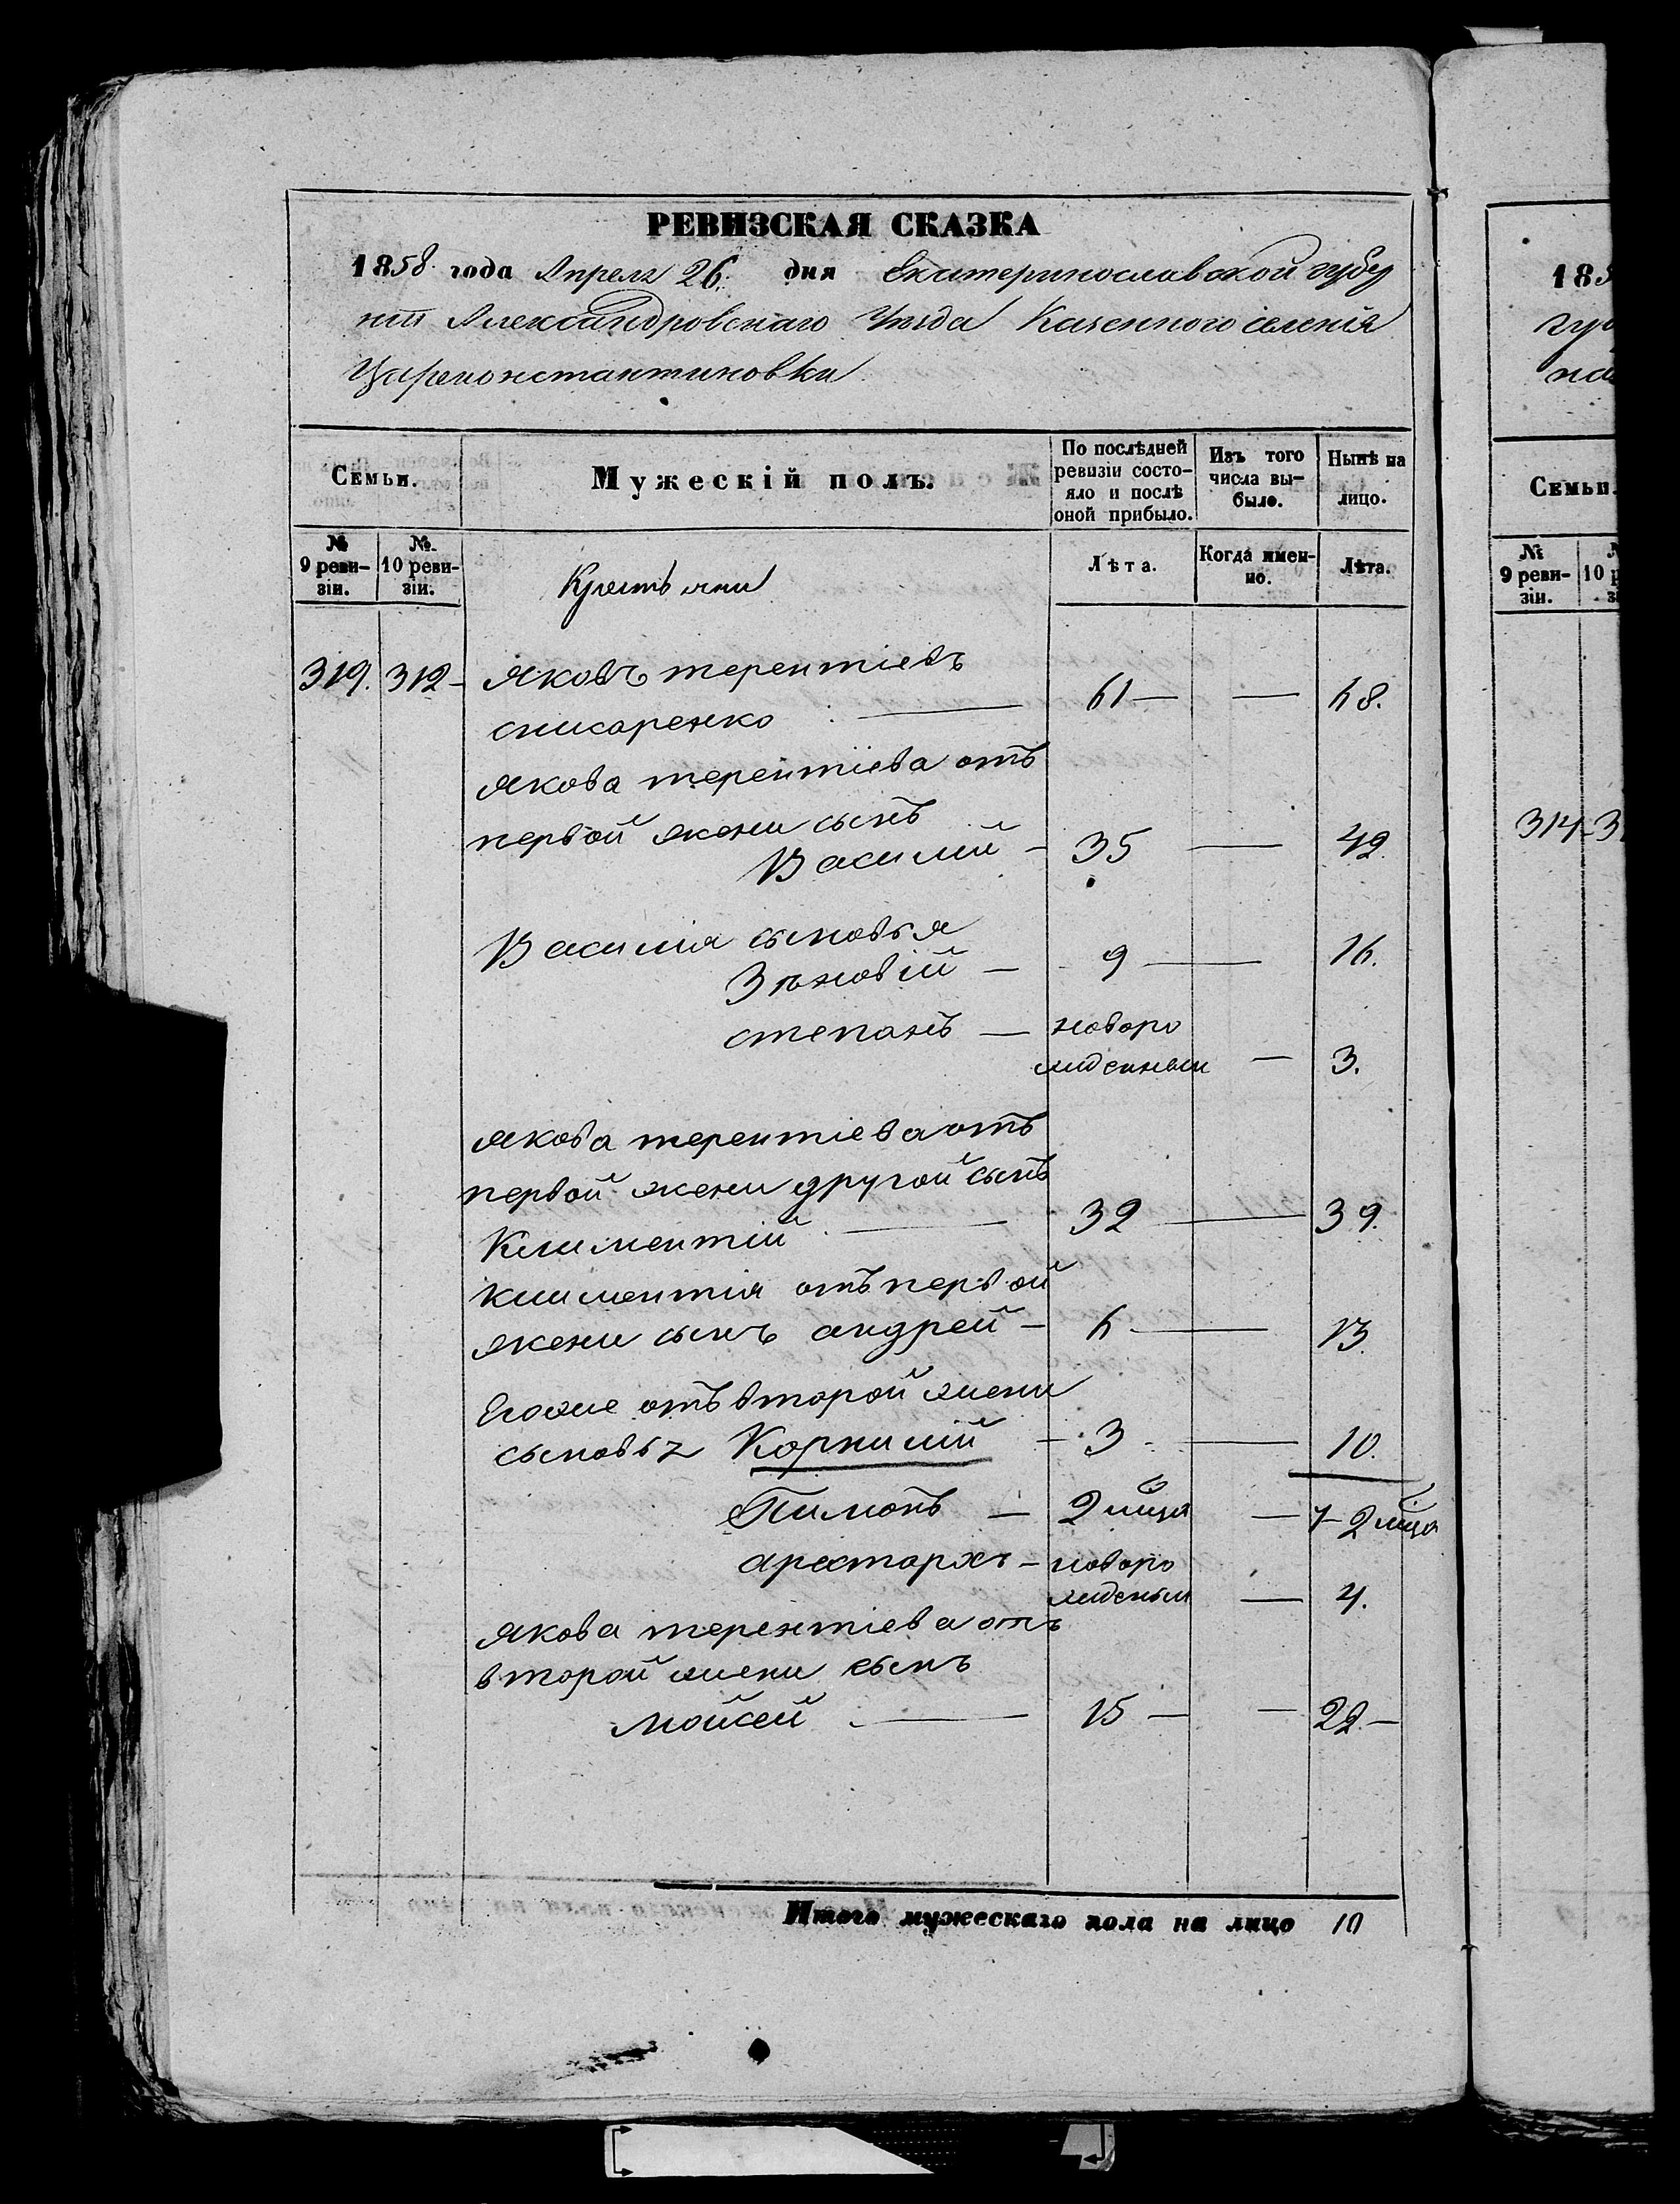 РЕВИЗСКАЯ СКАЗКА
1858 года Апреля 26. дня Екатеринославской губер
ніи Александровскаго Уѣзда Казенного селенія
Цареконстантиновки
Семьи.
Мужескій полъ.
По послѣдней ревизіи состояло и послѣ оной прибыло.
Изъ того числа выбыло.
Нынѣ на лицо.
№ 9 ревизіи.
№ 10 ревизіи.
Крестьяни
Лѣта.
Когда именно.
Лѣта.
319. 312 - Яковъ терентіевъ
списаренко — 61 — — 68.
Якова терентіева отъ
первой жени сынъ
Василий - 35 — 42.
Василія сыновья
Зѣновій — 9 — 16.
степанъ — новоро
жденный — 3.
Якова терентіева отъ
первой жени другой сынъ
Климентій — 32 — 39.
климентія отъ первой
жени сынъ андрей - 6 — 13.
Егоже отъ второй жени
сыновья Корнилій - 3 - — 10.
Пимонъ — 2 мца — 7- 2 мца
арестархъ - новоро
жденый — 4.
Якова терентіева отъ
второй жени сынъ
Мойсей — 15 — — 22. —
Итого мужескаго пола на лицо 10
185
гу
на
Семьи.
№ 9 ревизіи.
10
314 - 3